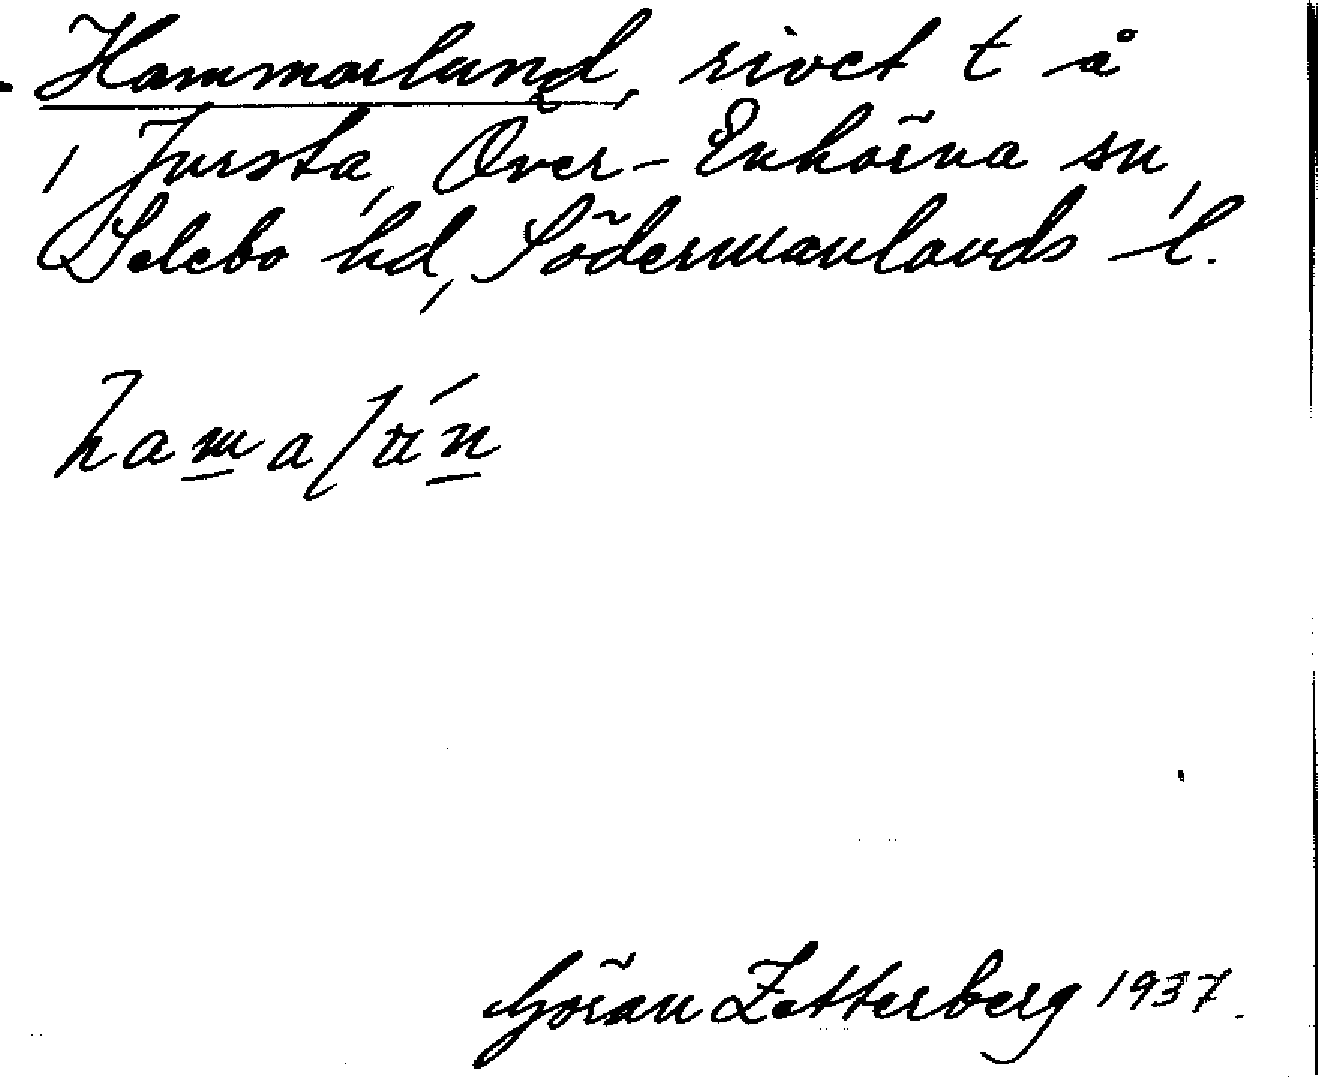 Hammarlund, rivet t å
i Jursta, Över-Enhörna sn,
Selebo hd, Södermanlands l.
hamalún
Göran Zetterberg 1937.